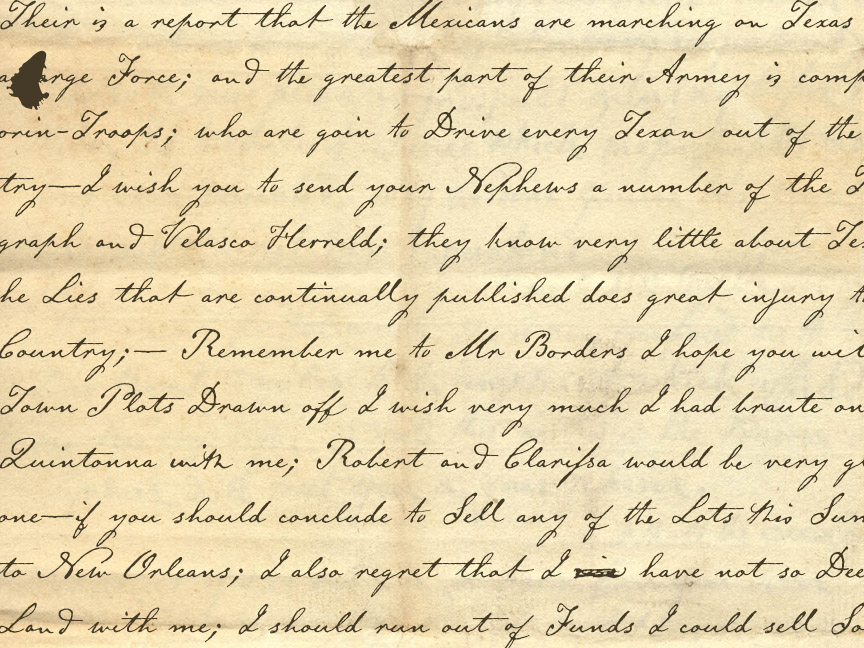 Their is a report that the Mexicans are marching on Texas
arge Force; and the greatest part of their Armey is comp
orin-Troops; who are goin to Drive every Texan out of the
try—I wish you to send your Nephews a number of the T
graph and Velasco Herreld; they know very little about Te
he Lies that are continually published does great injury t
Country;— Remember me to Mr Borders I hope you wi
Town Plots Drawn off I wish very much I had braute on
Quintanna with me; Robert and Clarissa would be very g
one—if you should conclude to Sell any of the Lots this Sum
to New Orleans; I also regret that I have not so Dee
Land with me; I should run out of Funds I could sell So